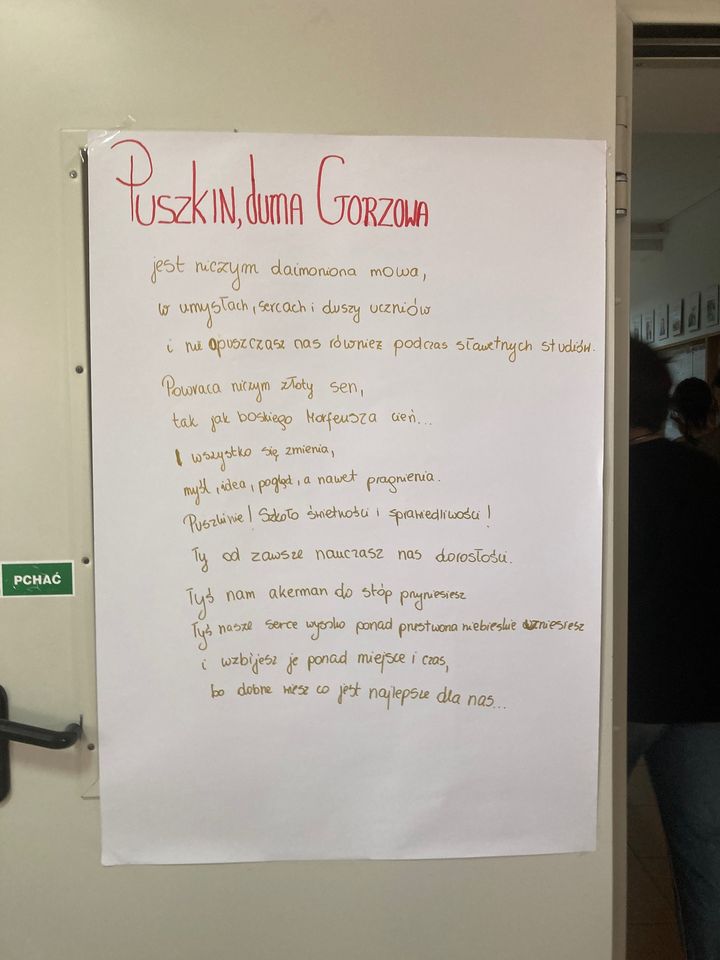 PUSZKIN, duma GORZOWA
jest niczym daimoniona mowa,
w umysłach, sercach i duszy uczniów
i nie opuszczasz nas również podczas sławetnych studiów.
Powraca niczym złoty sen,
tak jak boskiego Morfeusza cień...
I wszystko się zmienia,
myśl, idea, pogląd, a nawet pragnienia.
Puszkinie! Szkoło świetności i sprawiedliwości!
Ty od zawsze nauczasz nas dorosłości.
PCHAĆ
Tyś nam akerman do stóp przyniesiesz
Tyś nasze serce wysoko ponad przestworza niebieskie wzniesiesz
i wzbijesz je ponad miejsce i czas,
bo dobrze wiesz co jest najlepsze dla nas...